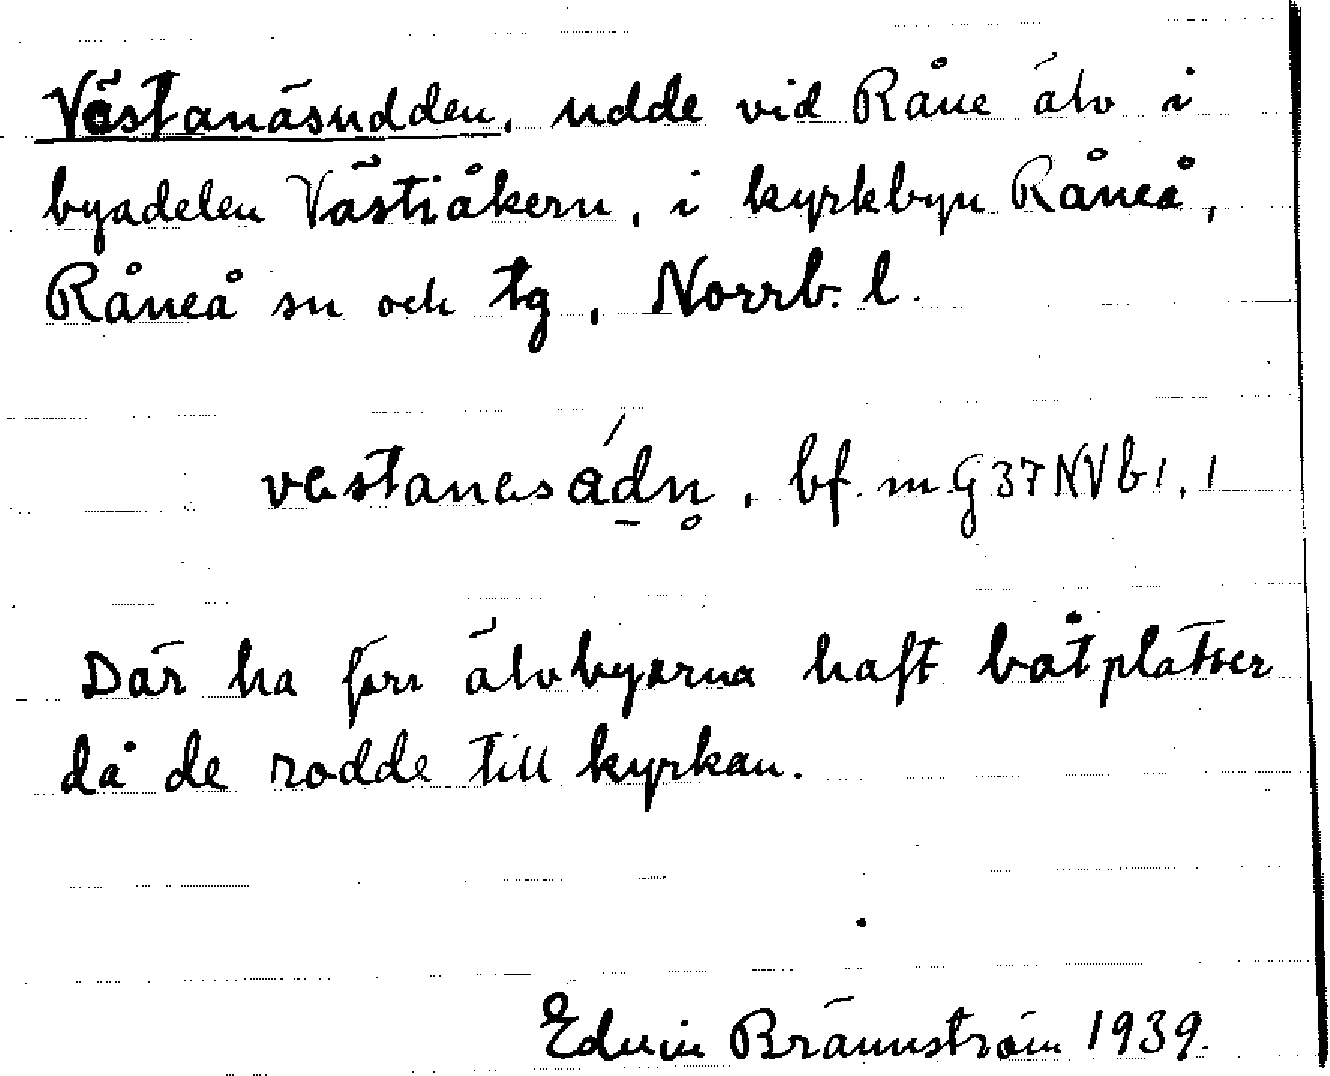 Västanäsudden, udde vid Råne älv i
byadelen Västiåkern, i kyrkbyn Råneå,
Råneå sn och tg, Norrb. l.
bf. m. G37NVb1,1
Där ha förr älvbyarna haft båtplatser
då de rodde till kyrkan.
Edvin Brännström 1939.